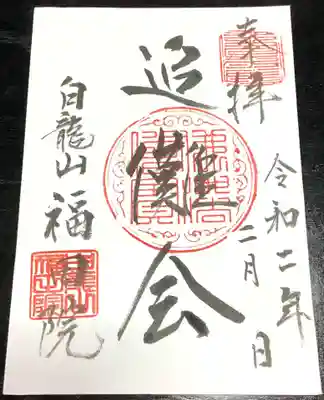 奉拝
令和二年二月 日
追儺会
白龍山
院